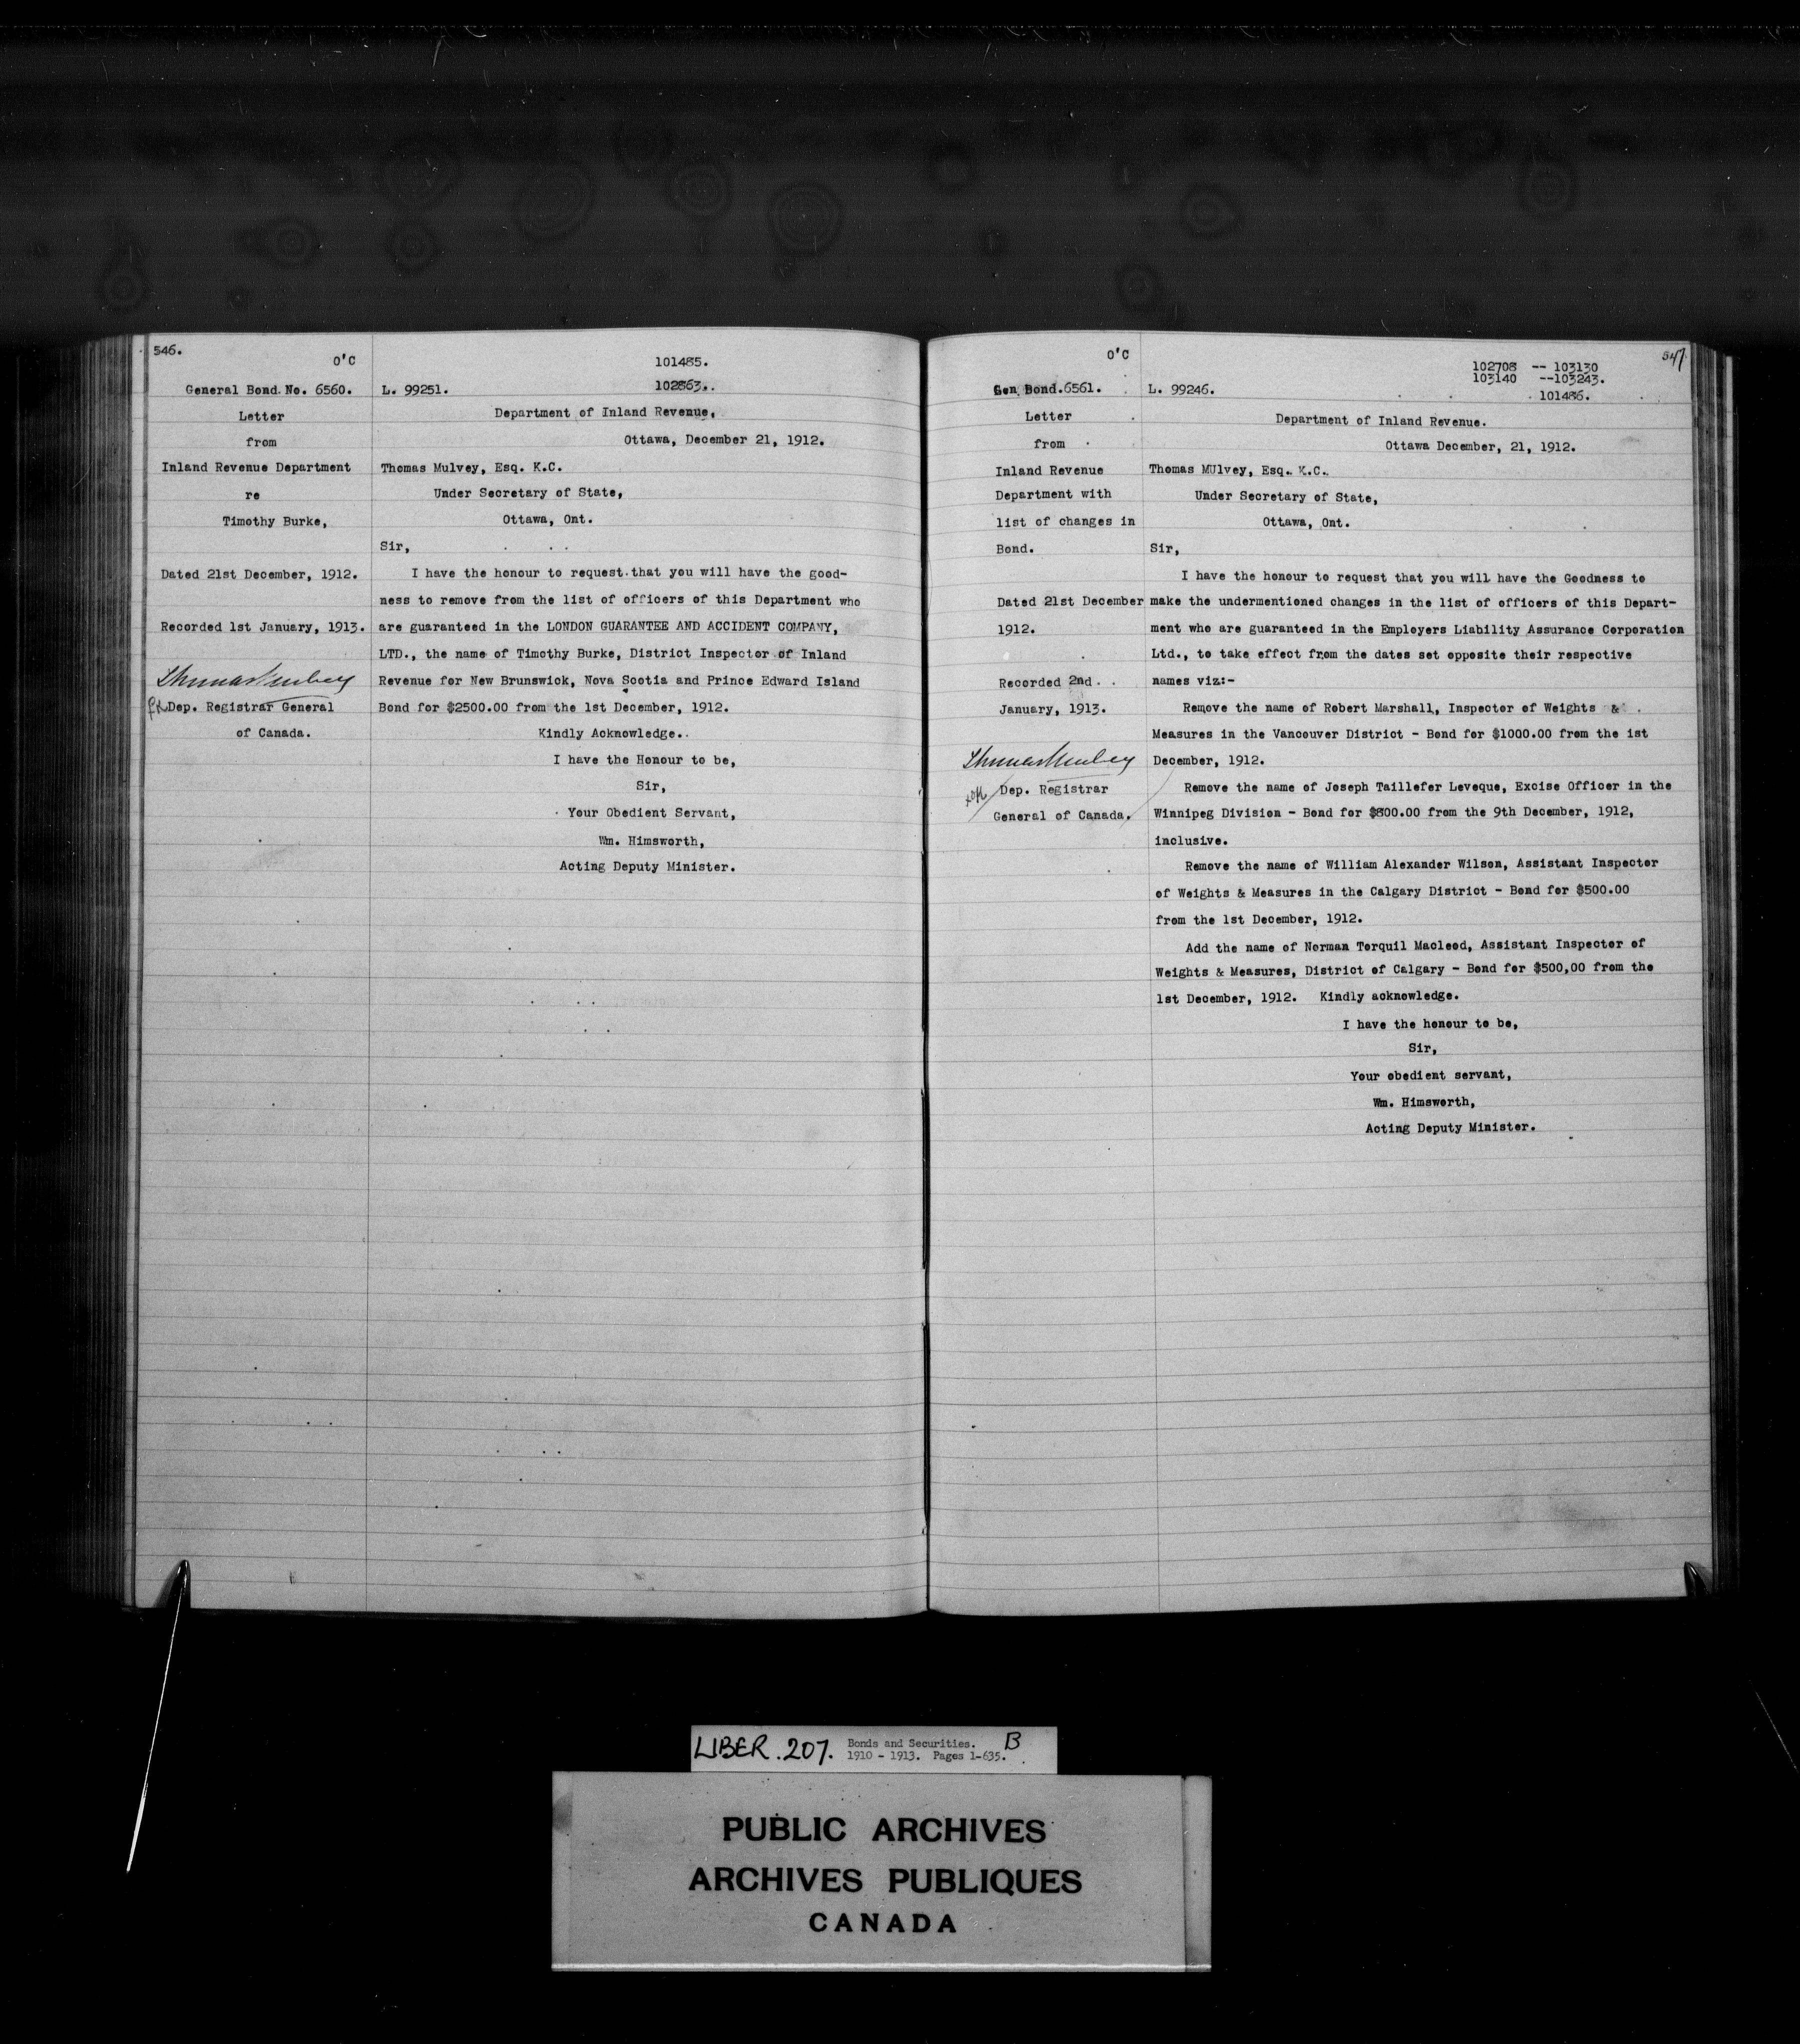 546.
O'C
General Bond No. 6560.
Letter
from
Inland Revenue Department
re
Timothy Burke,
Dated 21st December, 1912.
Recorded 1st January, 1913.
Thomas Mulvey
Dep. Registrar General
of Canada.
101485.
L. 99251.
102863.
Department of Inland Revenue,
Ottawa, December 21, 1912.
Thomas Mulvey, Esq. K.C.
Under Secretary of State,
Ottawa, Ont.
Sir,
I have the honour to request that you will have the good-
ness to remove from the list of officers of this Department who
are guaranteed in the LONDON GUARANTEE AND ACCIDENT COMPANY,
LTD., the name of Timothy Burke, District Inspector of Inland
Revenue for New Brunswick, Nova Scotia and Prince Edward Island
Bond for $2500.00 from the 1st December, 1912.
Kindly Acknowledge.
I have the Honour to be,
Sir,
Your Obedient Servant,
Wm. Himsworth,
Acting Deputy Minister.
547.
O'C
Gen. Bond.6561.
Letter
from
Inland Revenue
Department with
list of changes in
Bond.
Dated 21st December
1912.
Recorded 2nd
January, 1913.
Thomas Mulvey
Dep. Registrar
General of Canada.
102708 -- 103130
103140 --103243.
L. 99246.
101486.
Department of Inland Revenue.
Ottawa December, 21, 1912.
Thomas MUlvey, Esq. K.C.
Under Secretary of State,
Ottawa, Ont.
Sir,
I have the honour to request that you will have the Goodness to
make the undermentioned changes in the list of officers of this Depart-
ment who are guaranteed in the Employers Liability Assurance Corporation
Ltd., to take effect from the dates set opposite their respective
names viz:-
Remove the name of Robert Marshall, Inspector of Weights &
Measures in the Vancouver District - Bond for $1000.00 from the 1st
December, 1912.
Remove the name of Joseph Taillefer Leveque, Excise Officer in the
Winnipeg Division - Bond for $800.00 from the 9th December, 1912,
inclusive.
Remove the name of William Alexander Wilson, Assistant Inspector
of Weights & Measures in the Calgary District - Bond for $500.00
from the 1st December, 1912.
Add the name of Norman Torquil Macleod, Assistant Inspector of
Weights & Measures, District of Calgary - Bond for $500,00 from the
1st December, 1912. Kindly acknowledge.
I have the honour to be,
Sir,
Your obedient servant,
Wm. Himsworth,
Acting Deputy Minister.
LIBER. 207. Bonds and Securities. B
1910 - 1913. Pages 1-635.
PUBLIC ARCHIVES
ARCHIVES PUBLIQUES
CANADA